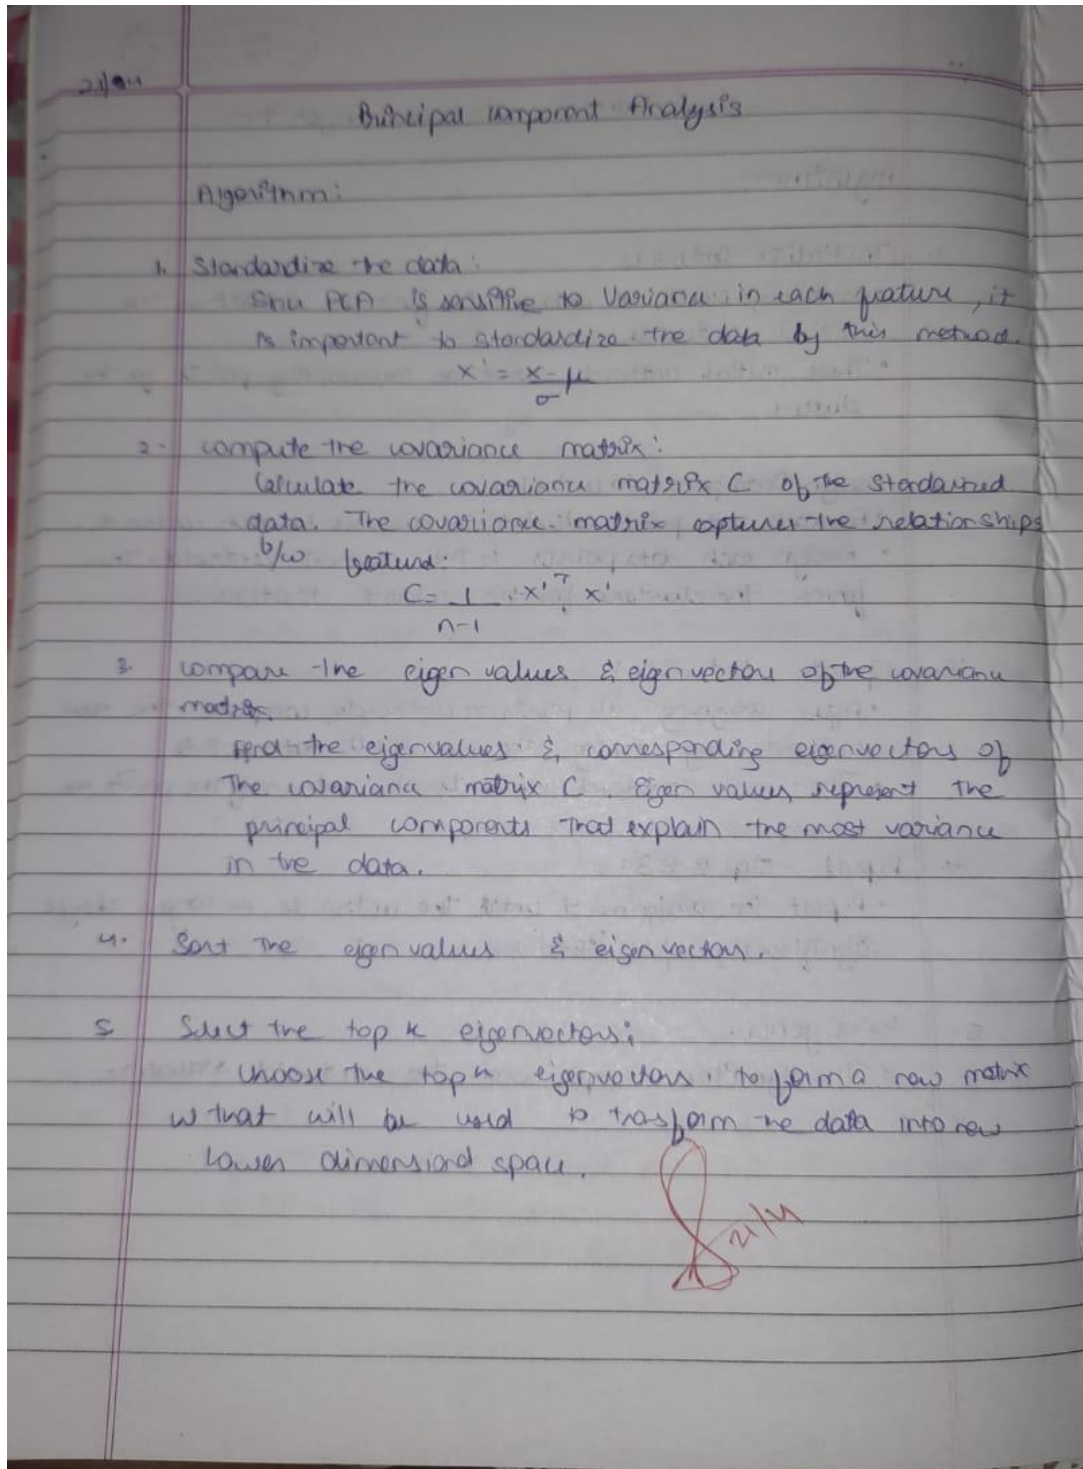 21/04
Principal component Analysis
Algorithm:
1. Standardize the data:
Sinu PCA is sensitive to Variance in each feature, it
is important to standardize the data by this method.
x' = x - μ
σ
2. compute the covariance matrix:
Calculate the covariance matrix C of the standarized
data. The covariance matrix captures the relationships
b/w feature.
C = 1 x'ᵀ x'
n-1
3. compare the eigen values & eigen vectors of the covariance
matrix.
Find the eigenvalues & corresponding eigenvectors of
The covariance matrix C. Eigen values represent the
principal components that explain the most variance
in the data.
4. Sort The eigen values & eigen vectors.
5 Select the top k eigenvectors:
choose the top k eigenvectors. to form a new matrix
w that will be used to trasform the data into new
lower dimensional space.
21/4